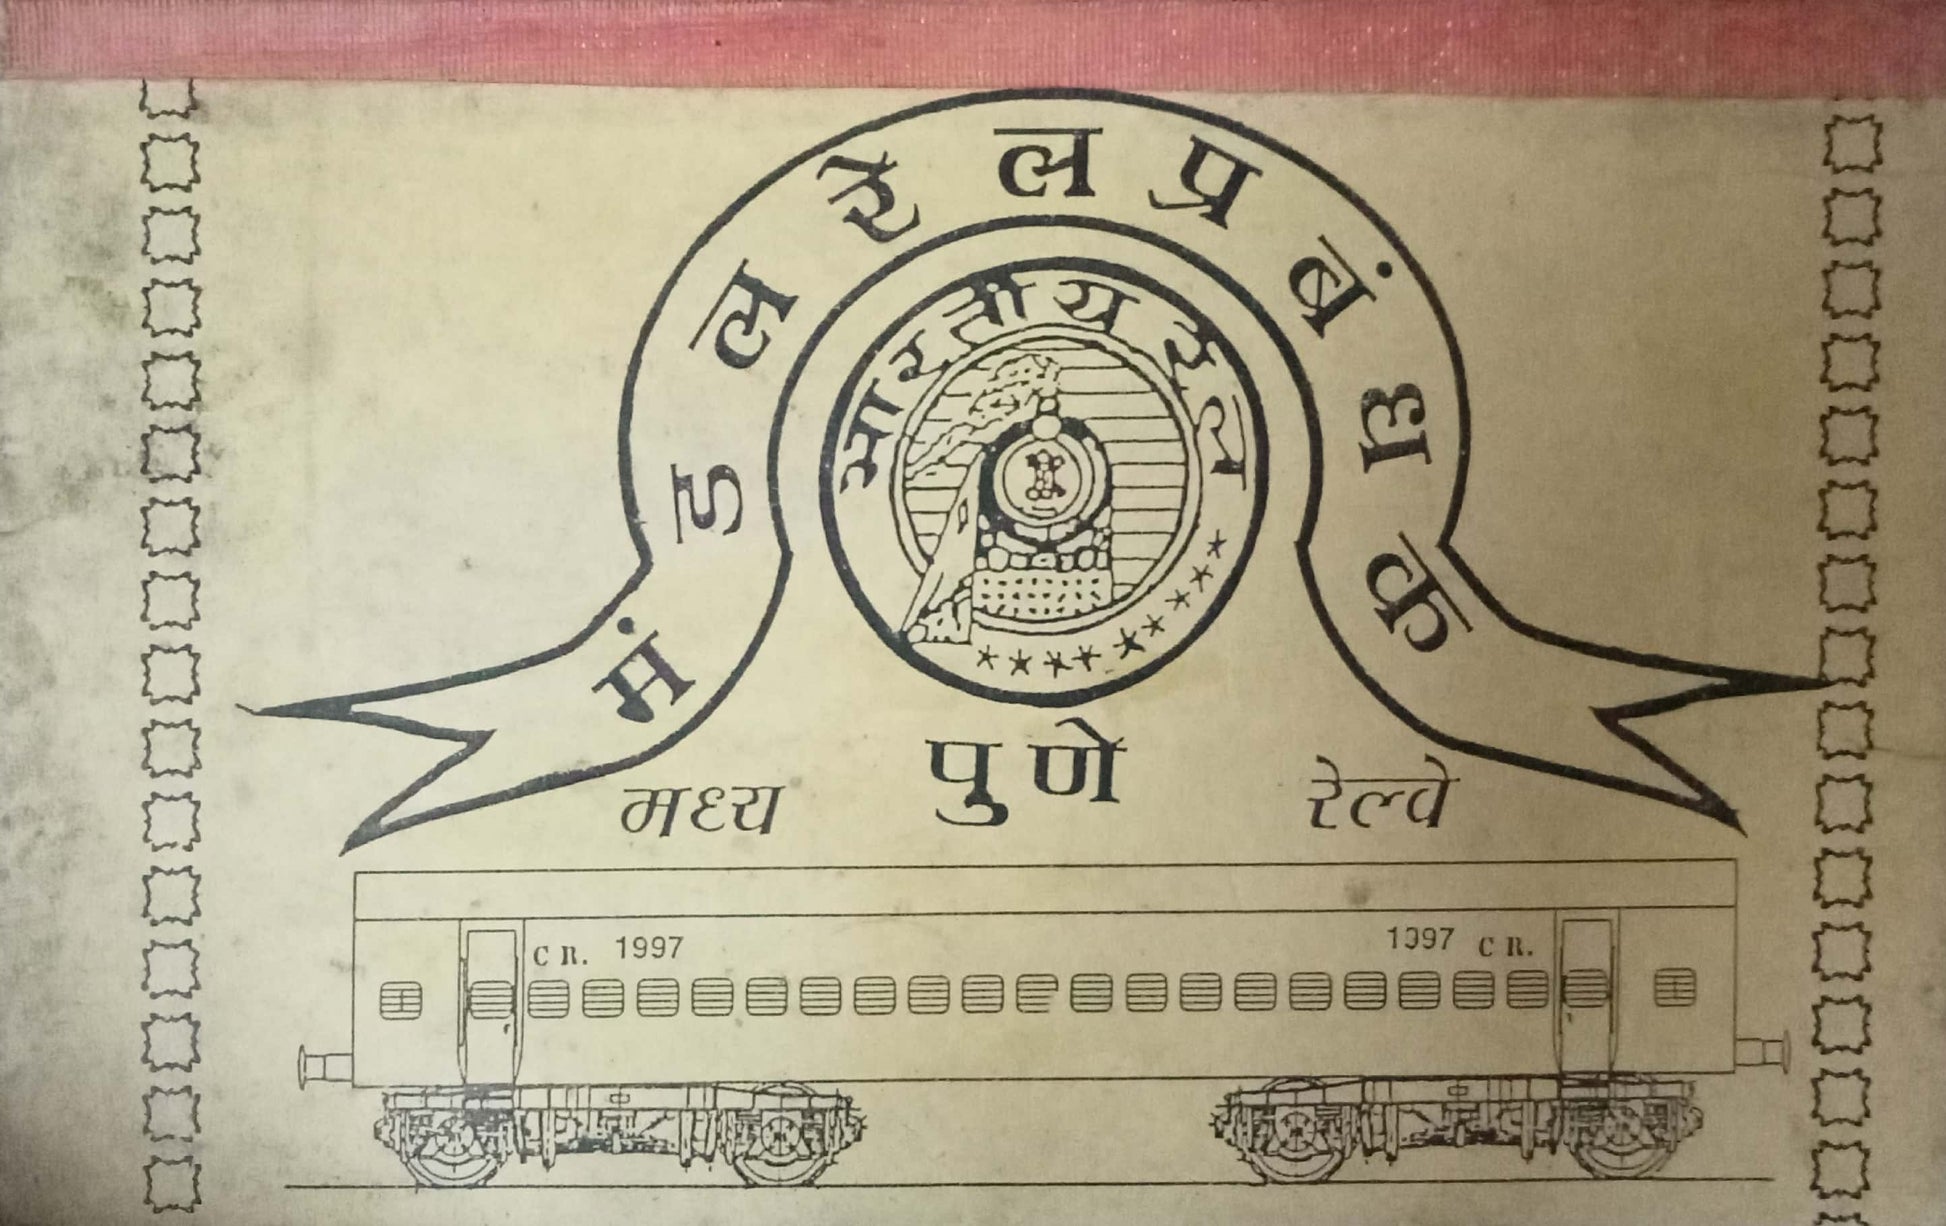 मंडल रेल प्रबंधक
भारतीय रेल
पुणे
मध्य रेल्वे
C R. 1997
1997 C R.